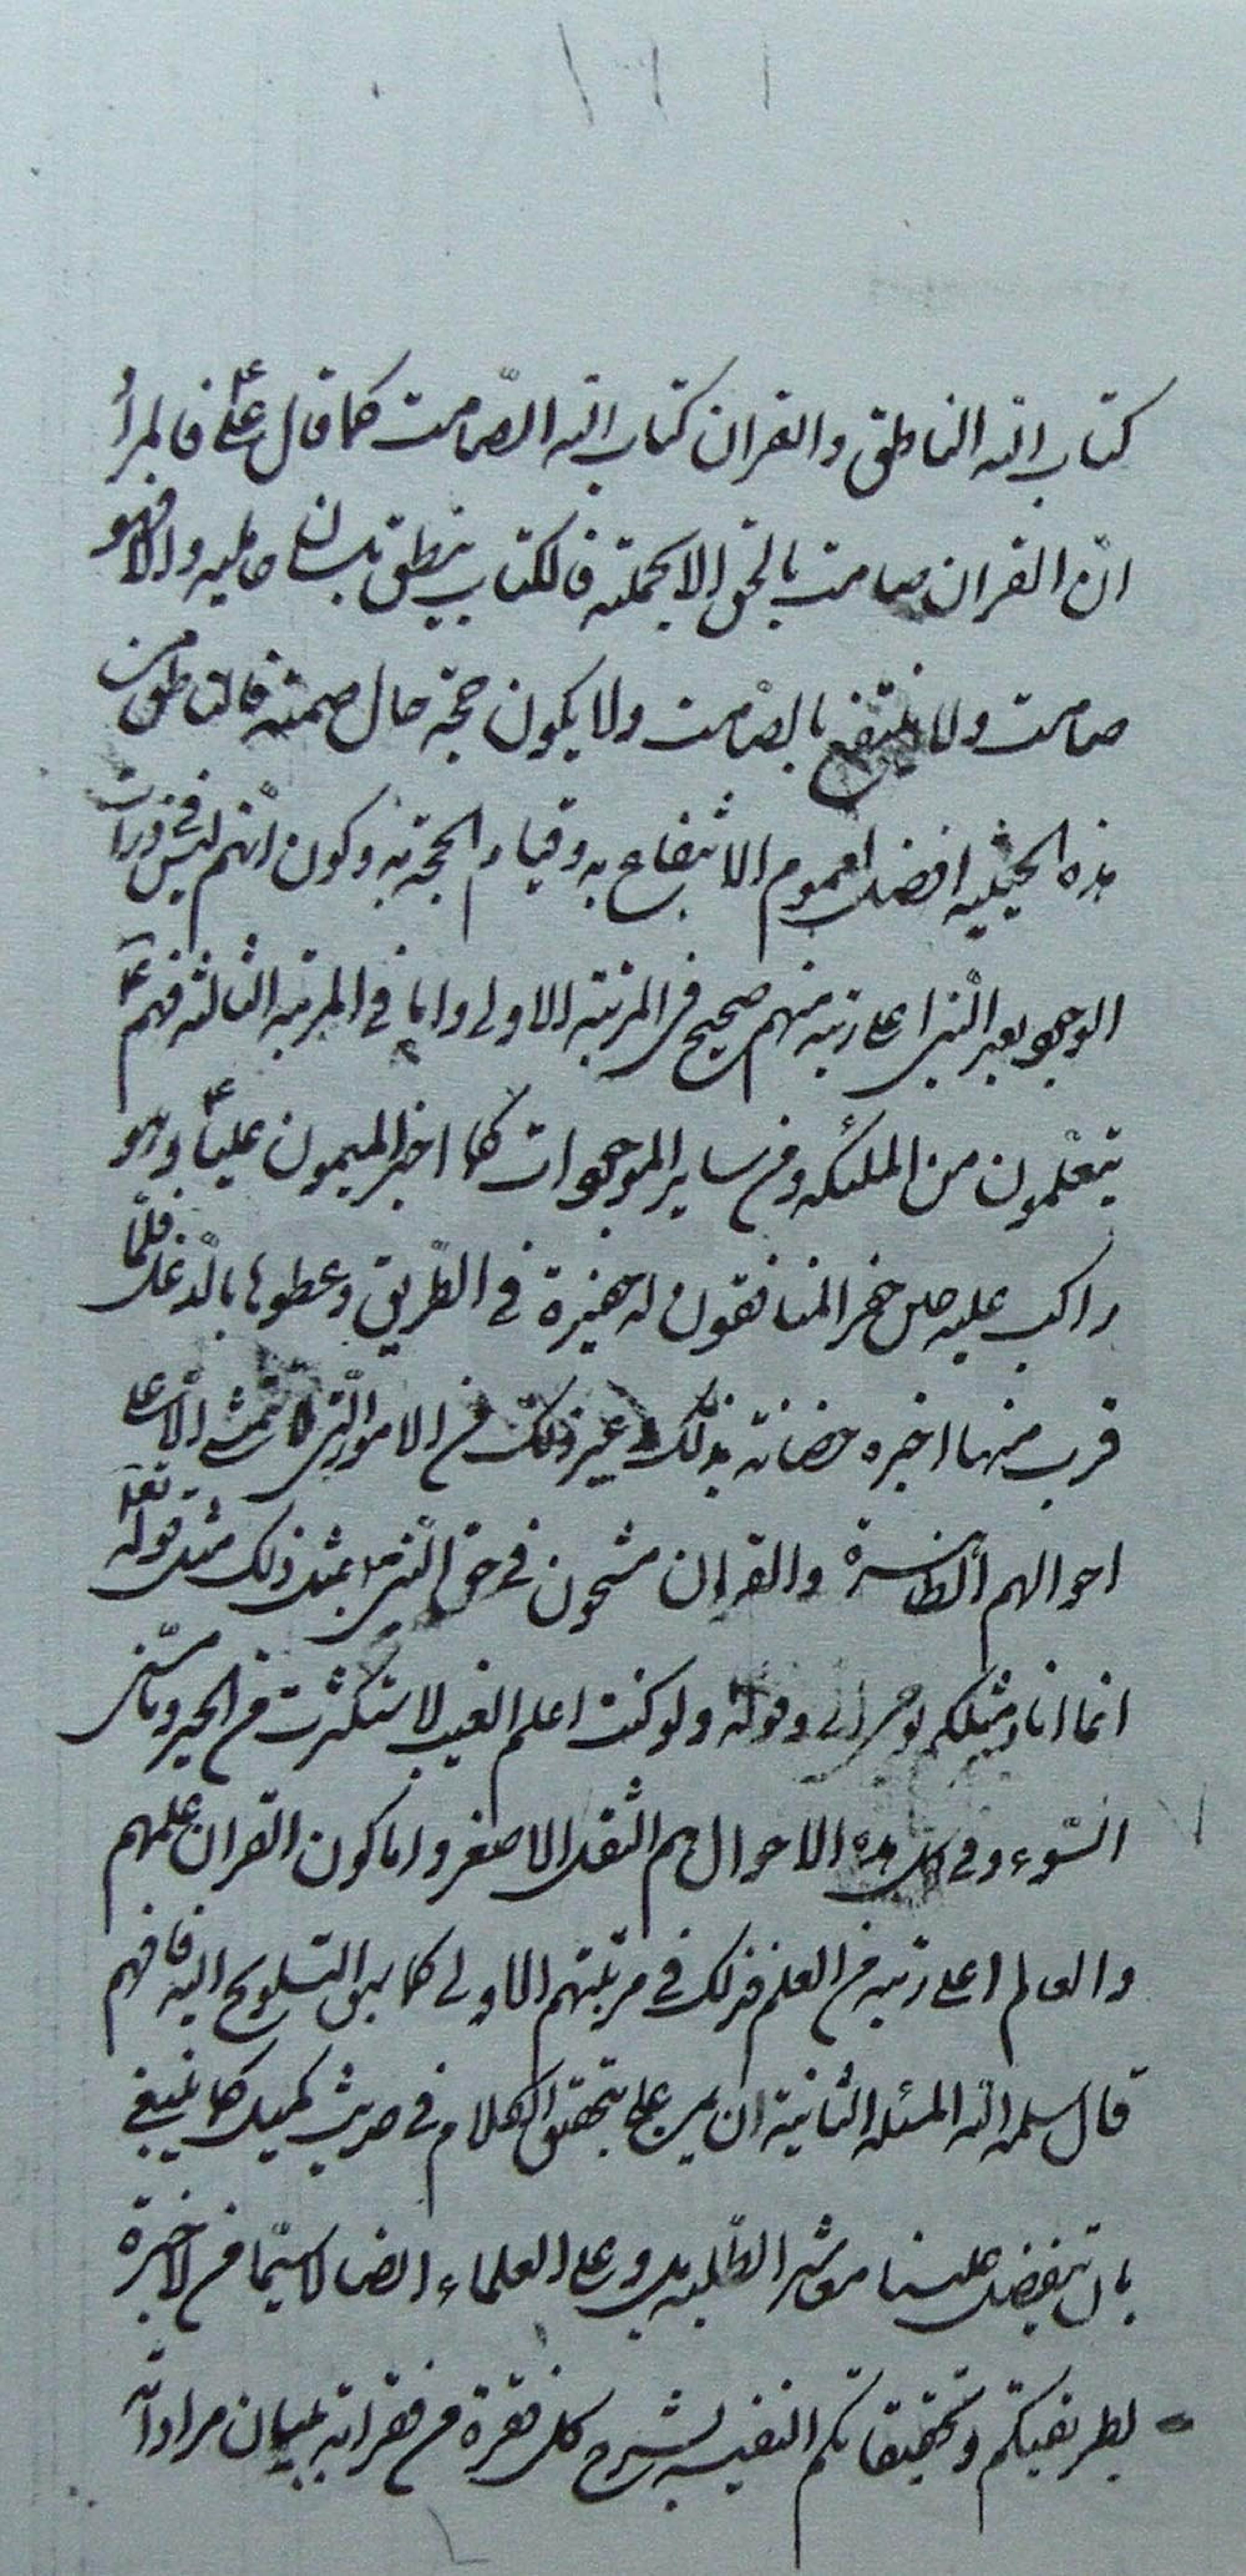 كتاب الله الناطق والقران كتاب الله الصّامت كما قال علي ع فالمرأ
انّ القران صامت بالحق الا بحملته فالكتاب ينطق بلسان حامليه والا فهو
صامت ولا ينتفع بالصّامت ولا يكون حجّة حال صمته فالناطق من
هذه الحيثيه افضل لعموم الانتفاع به وقيام الحجّة به وكون انّهم ليس في ذرات
الوجود بعد النّبي اعلى رتبه منهم صحيح في المرتبة الاولى واما في المرتبه الثالثه فهم ع
يتعلّمون من الملئكه ومن ساير الموجودات كما اخبر الميمون عليّا ع وهو
راكب عليه حين حفر المنافقون له حفيرة في الطّريق وغطوها بالدّغل فلمّا
قرب منها اخبره حصانه بذلك وغير ذلك من الامور الّتى لا تتمشّى الّا على
احوالهم الظاهرة والقران مشحون في حق النّبي ص بمثل ذلك مثل قوله تعالى
انما انا مثلكم يوحى الي وقوله ولو كنت اعلم الغيب لاستكثرت من الخير وما مسّني
السّوء وفي كل هذه الاحوال هم الثقل الاصغر واما كون القران علمهم
والعالم اعلى رتبه من العلم فذلك في مرتبتهم الاولى كما سبق التلويح اليه فافهم
قال سلمه الله المسئله الثانية ان يمن علي بتحقيق الكلام في حديث كميل كما ينبغي
بان يتفضل علينا معاشر الطّلبه بل وعلى العلماء ايضا لا سيّما من لا خبرة
بطريقتكم وتحقيقاتكم النفيسه بشرح كل فقرة من فقراته ببيان مراد الله